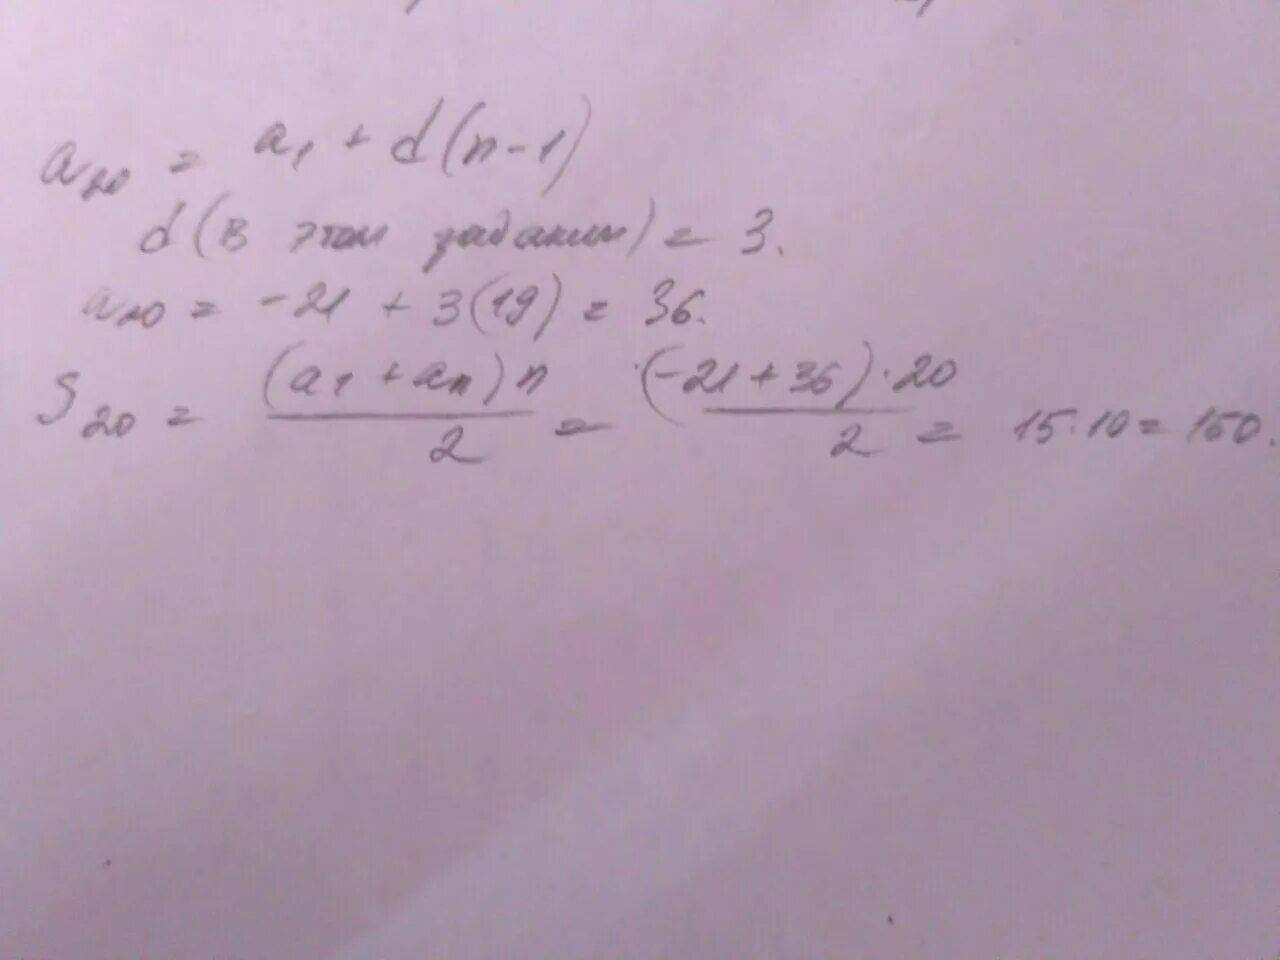 a₂₀ = a₁ + d(n-1)
d(в этом задании) = 3.
a₂₀ = -21 + 3(19) = 36.
S₂₀ = (a₁ + aₙ)n / 2 = (-21+36)·20 / 2 = 15·10 = 150.